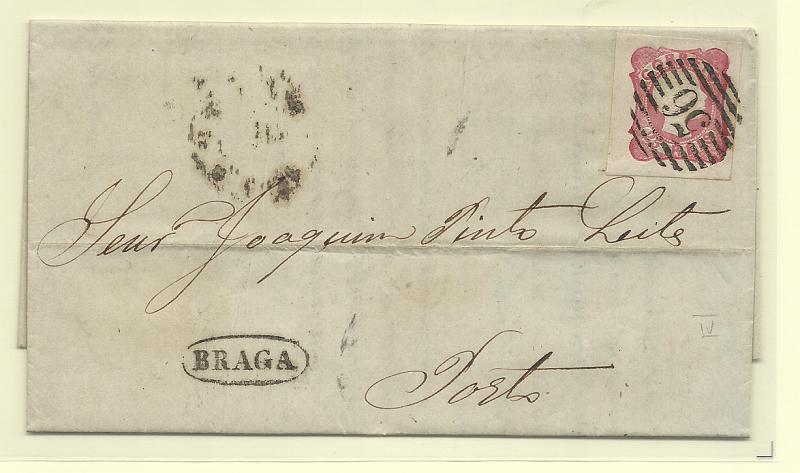 Senr Joaquim Pinto Leite
BRAGA
Porto
IV